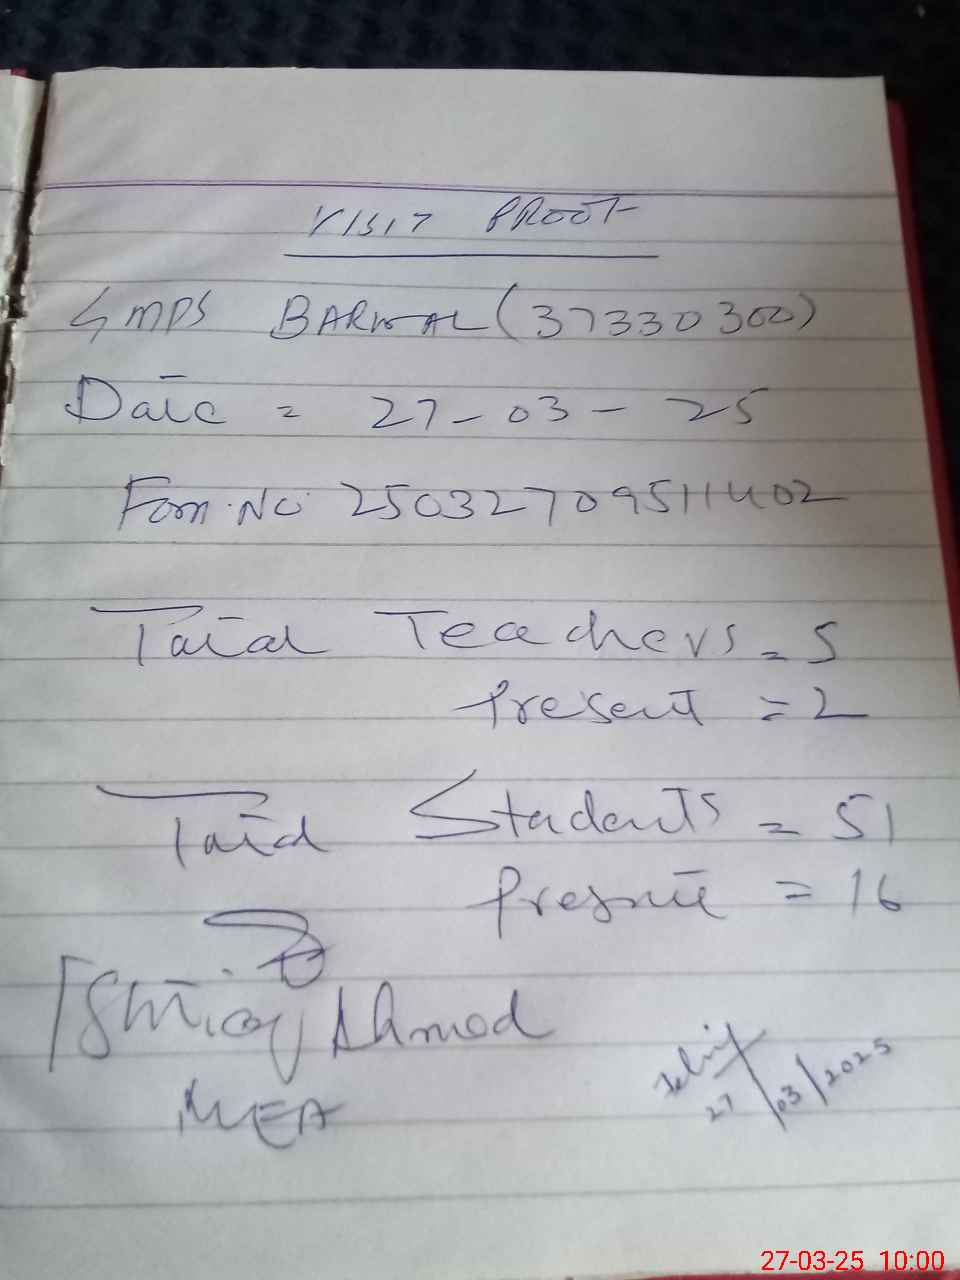 VISIT PROOF
GMPS BARWAL (37330300)
Date = 27-03-25
Form.No 250327095111402
Total Teachers = 5
Present = 2
Total Students = 51
Present = 16
Ishtiaq Ahmed
MEA
27/03/2025
27-03-25 10:00